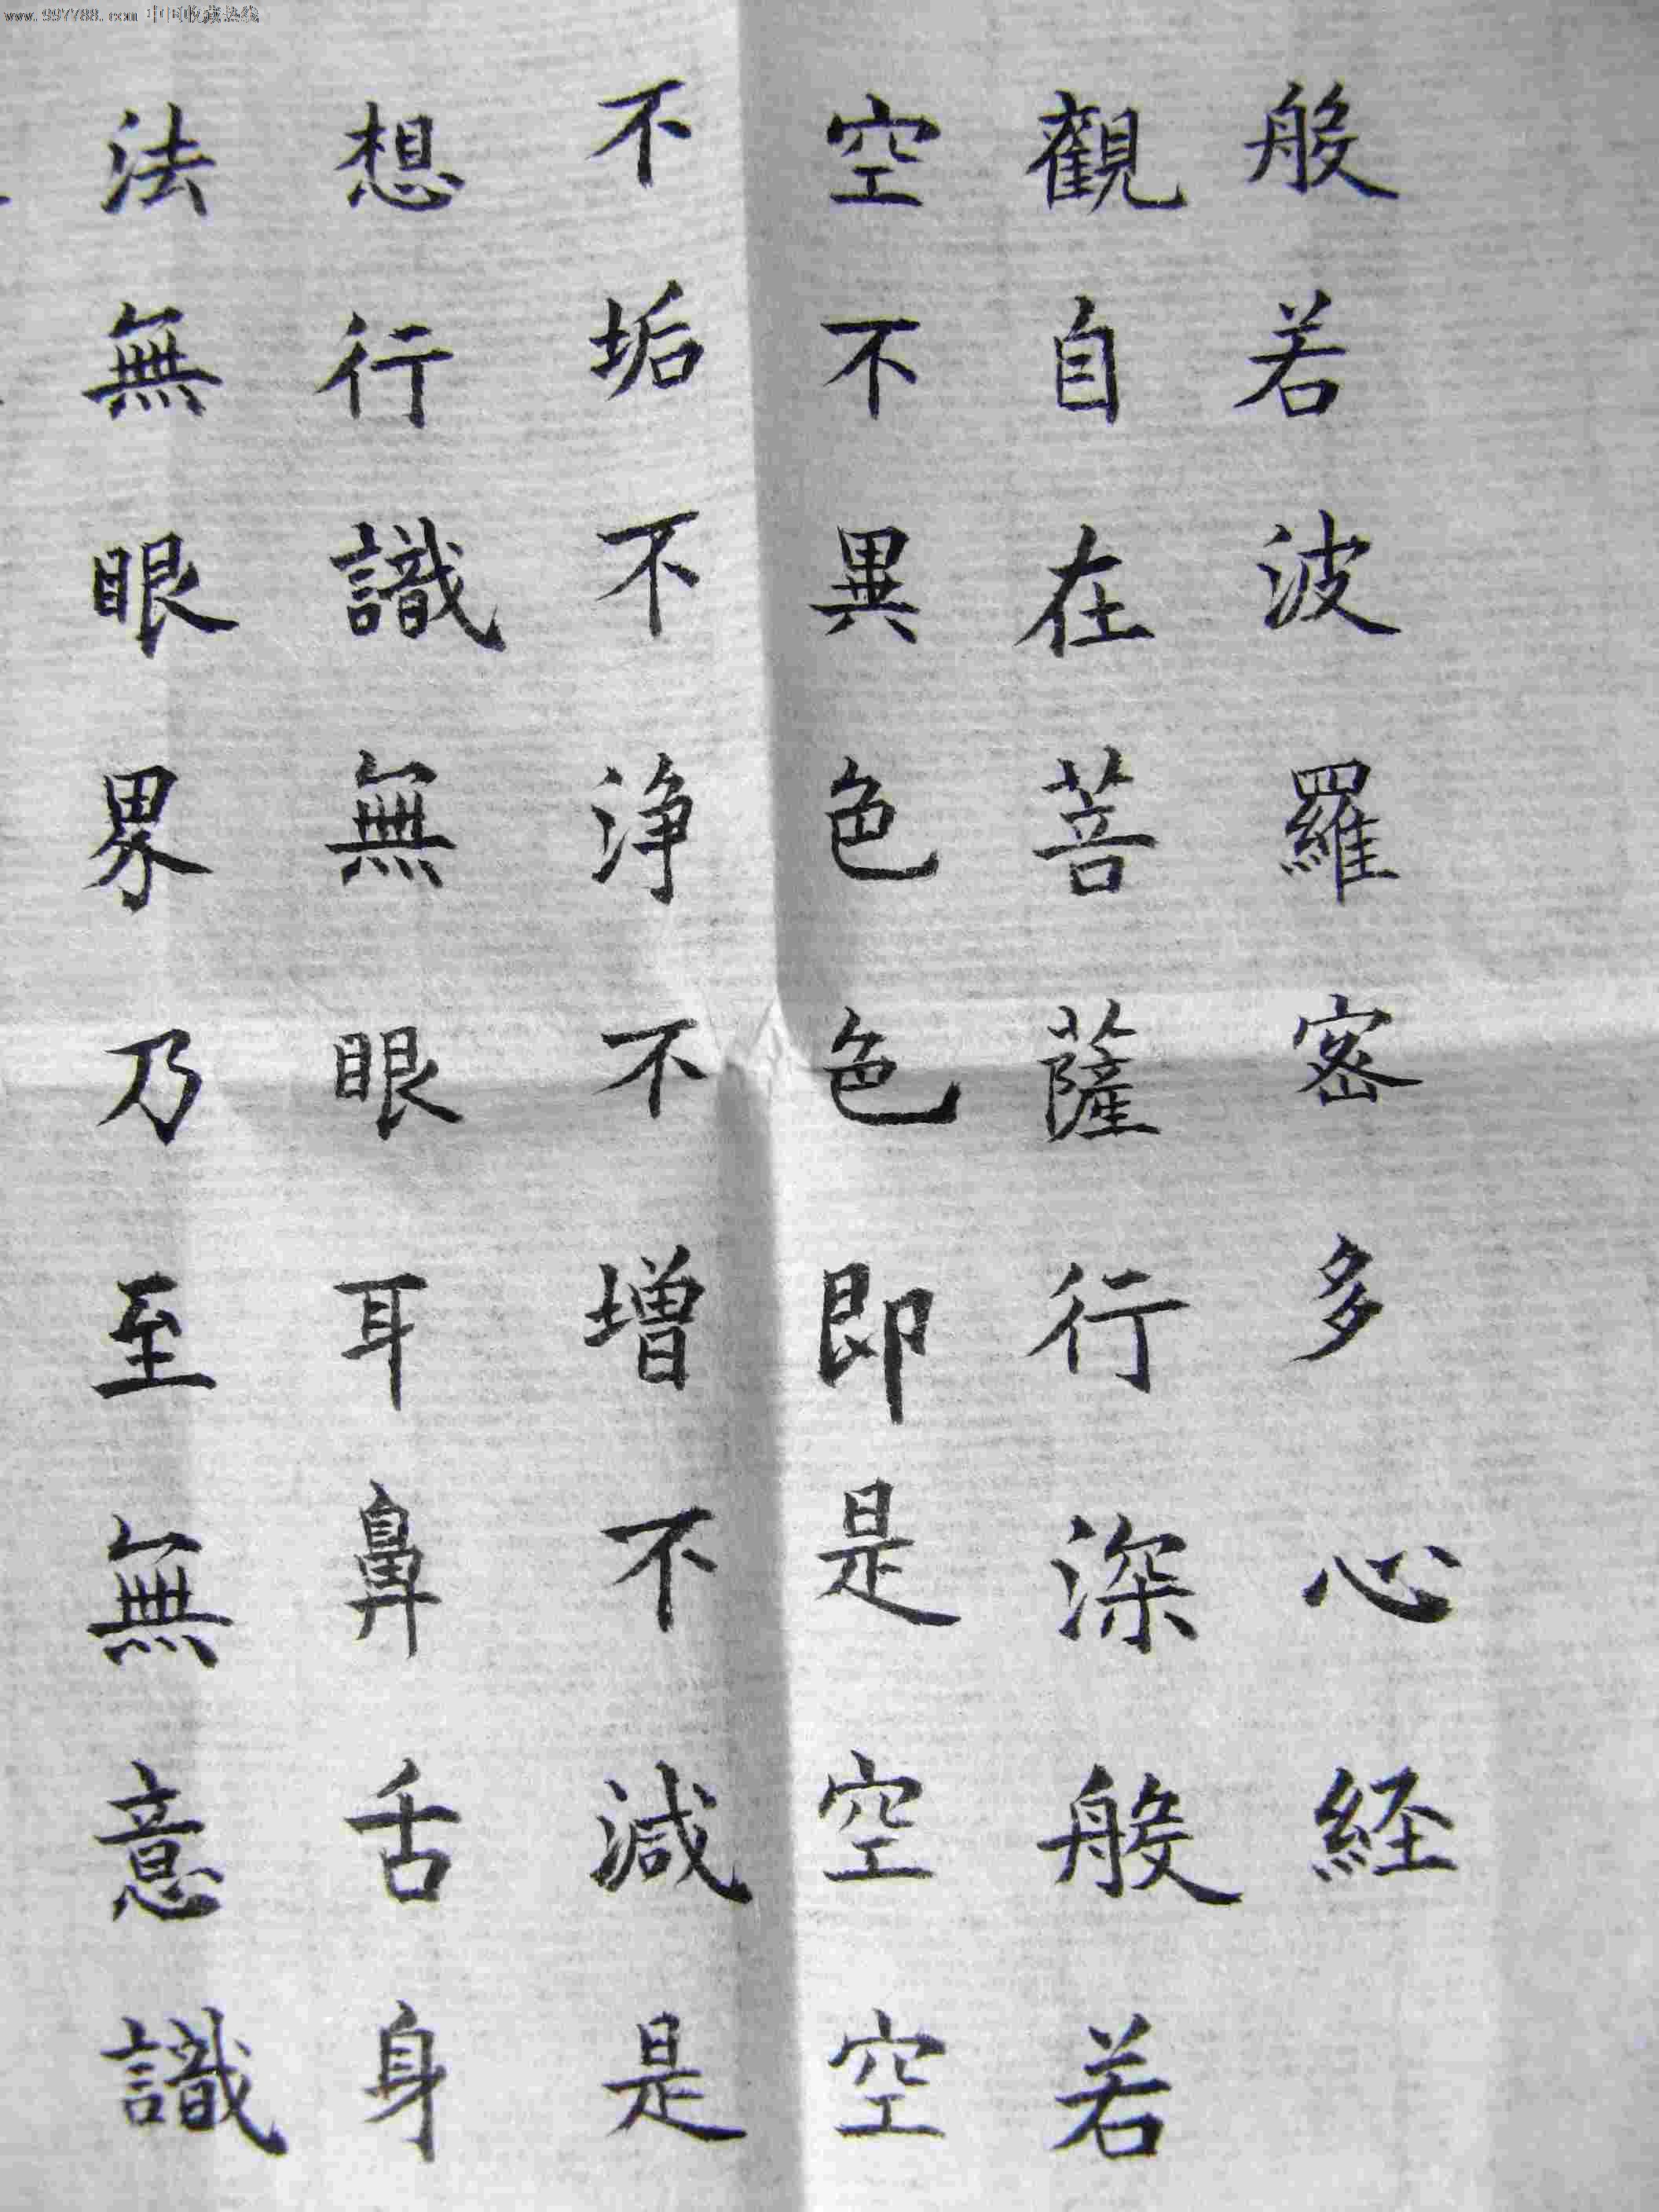 www.997788.com 中国收藏热线
般若波羅密多心経
觀自在菩薩行深般若
空不異色色即是空空
不垢不浄不增不減是
想行識無眼耳鼻舌身
法無眼界乃至無意識